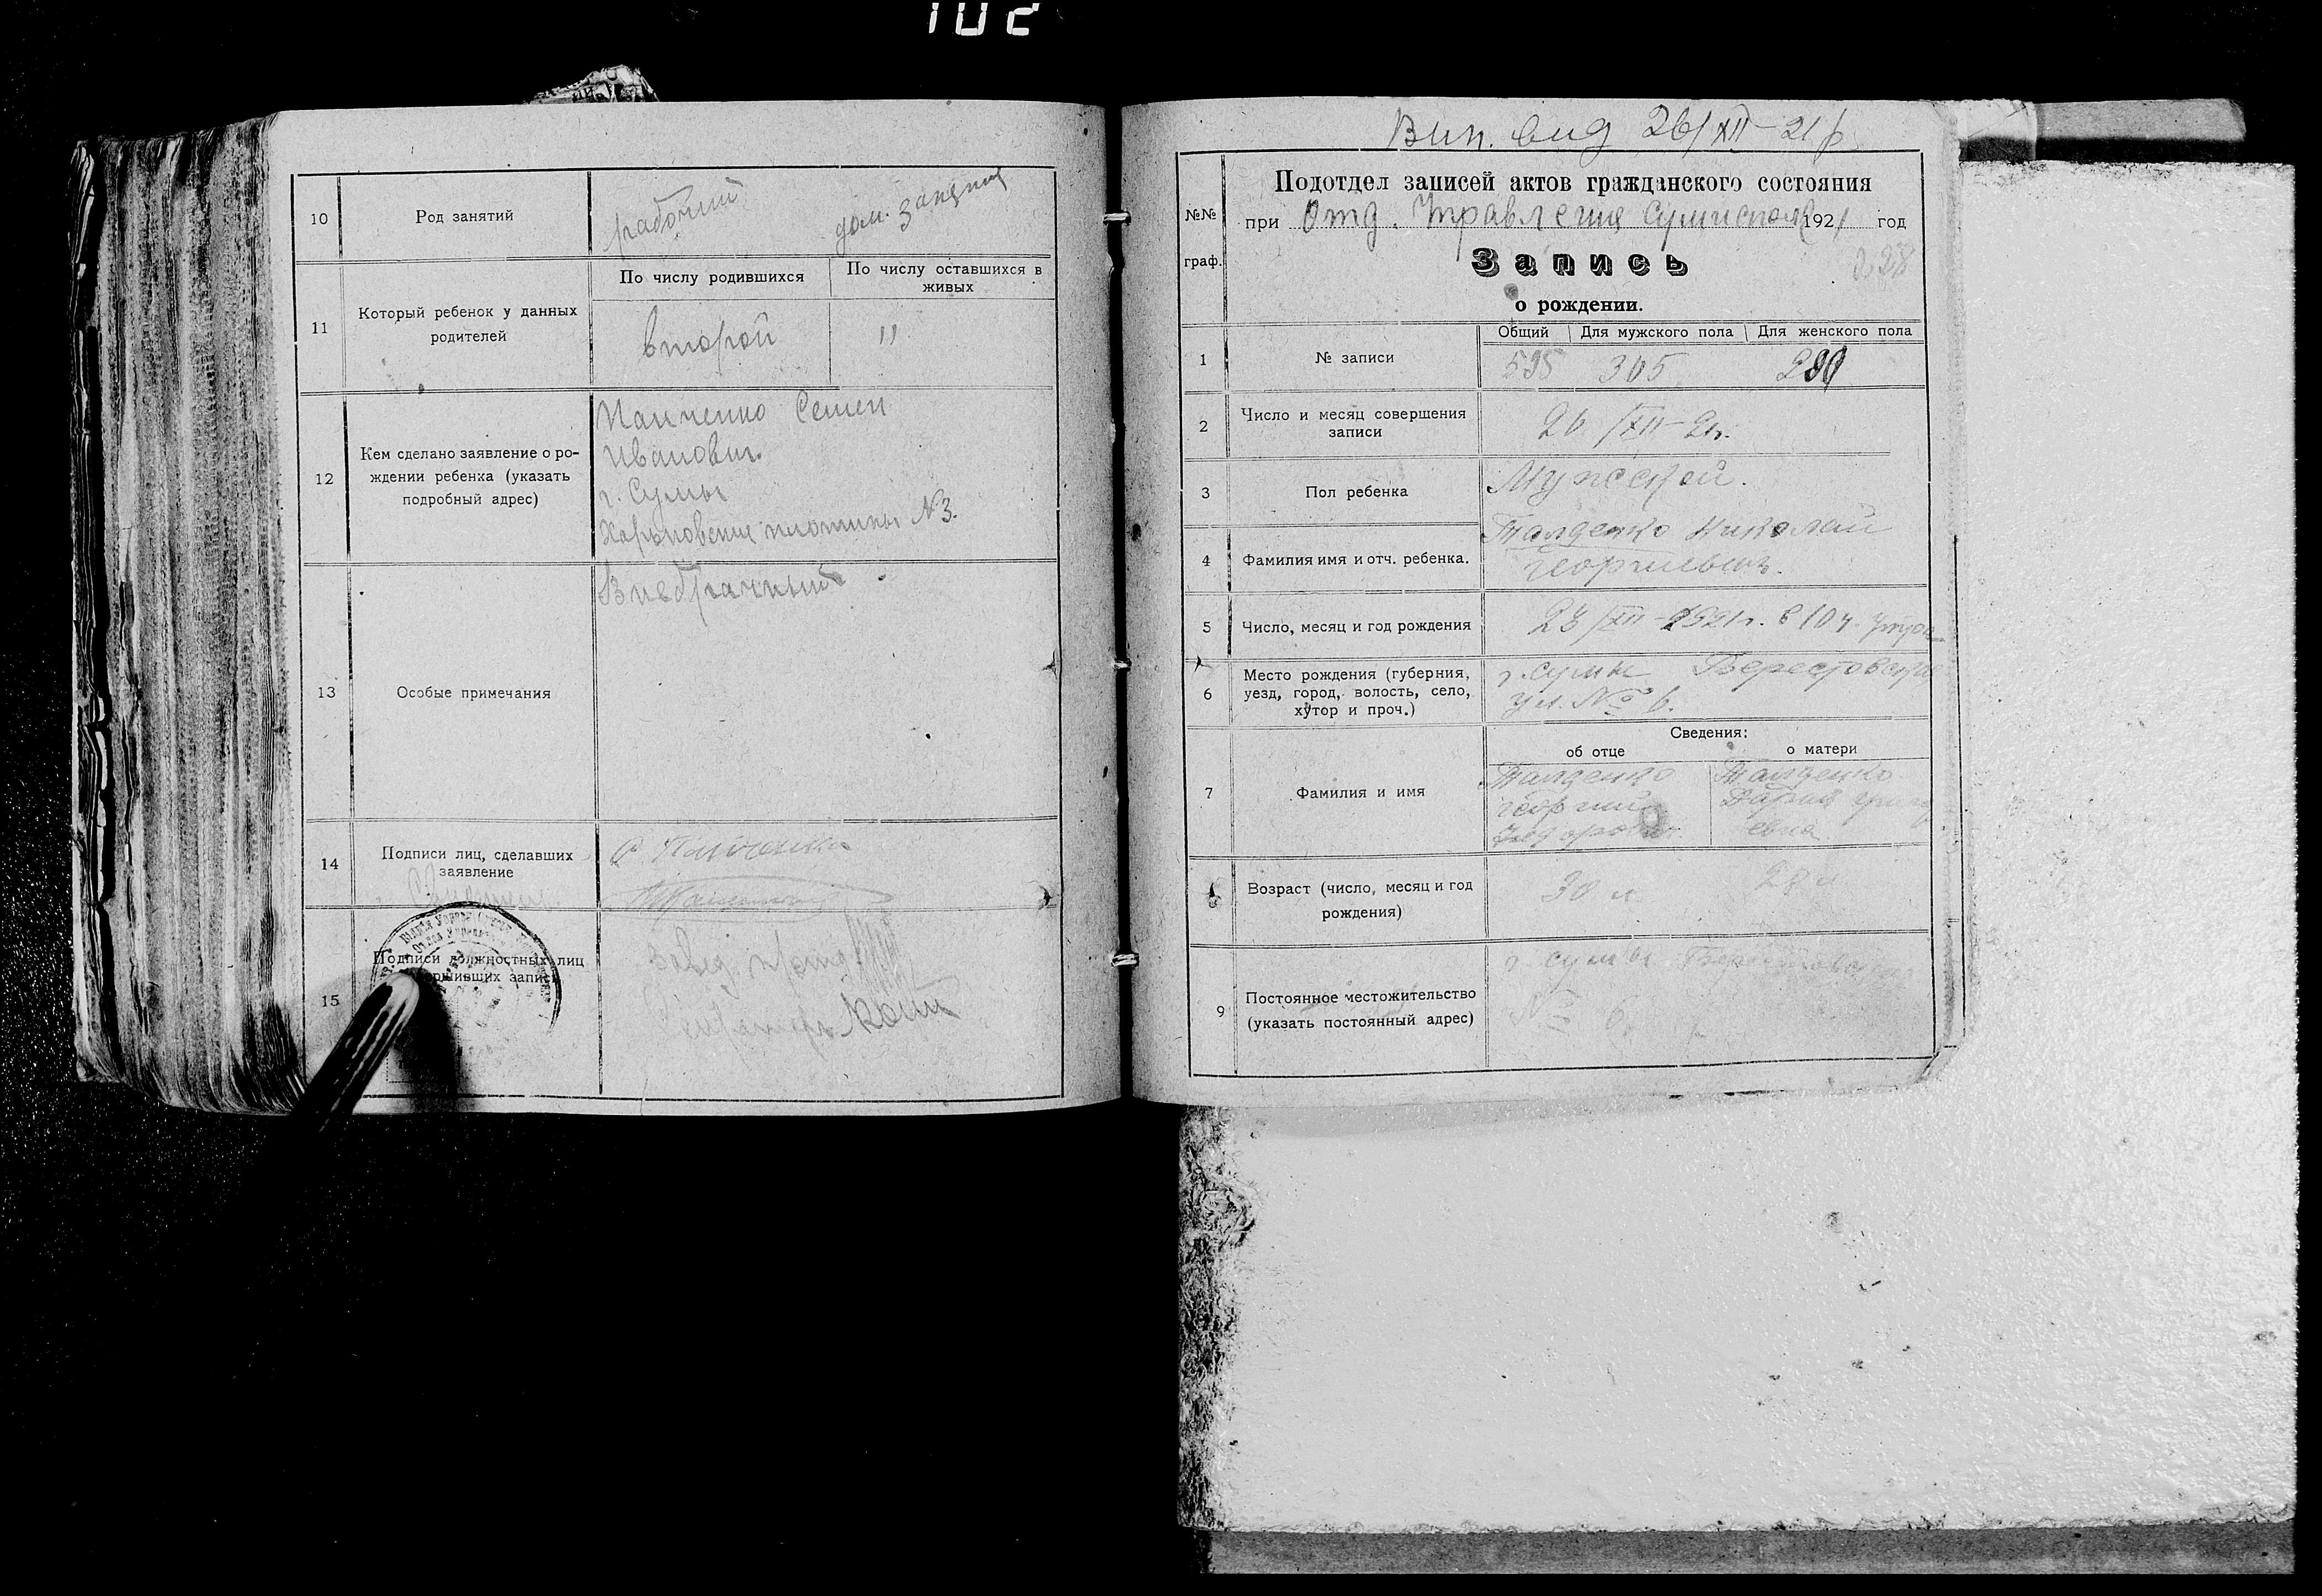 102
10
Род занятий
рабочий
дом. занятия
11
Который ребенок у данных
родителей
По числу родившихся
По числу оставшихся в
живых
второй
"
12
Кем сделано заявление о ро-
ждении ребенка (указать
подробный адрес)
Панченко Семен
Иванович
г. Сумы
Харьковские плотины № 3.
13
Особые примечания
Внебрачный
14
Подписи лиц, сделавших
заявление
15
Подписи должностных лиц
совершивших запись
Вип. вид 26/XII-21 р
Подотдел записей актов гражданского состояния
№№
граф.
при Отд. Управления 1921 год
Запись
228
о рождении.
1
№ записи
Общий
Для мужского пола
Для женского пола
595
305
290
2
Число и месяц совершения
записи
26/XII-21г.
3
Пол ребенка
Мужской.
4
Фамилия имя и отч. ребенка.
Николай
Георгиевич.
5
Число, месяц и год рождения
23/XII-1921г. в 10 ч. утра
6
Место рождения (губерния,
уезд, город, волость, село,
хутор и проч.)
г. Сумы Берестовская
ул. № 6.
7
Фамилия и имя
Сведения:
об отце
о матери
Георгий
Федорович
Дария
8
Возраст (число, месяц и год
рождения)
30 л
28 л
9
Постоянное местожительство
(указать постоянный адрес)
г. Сумы Берестовская
№ 6.